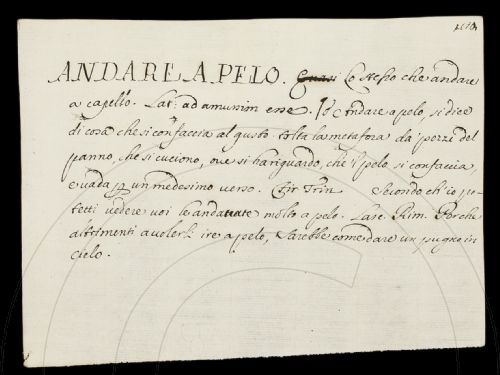 ANDARE A PELO. Quasi Lo stesso che andare
a capello. Lat: ad amussim esse. Andare a pelo, si dice
di cosa che si confaccia al gusto tolta la metafora da' pezzi del
panno, che si cuciono, ove si ha riguardo, che il pelo si confaccia,
e vada p un medesimo verso. Fir Trin Secondo ch'io po-
tetti vedere voi le andate molto a pelo. Lasc. Rim. Perche
altrimenti a volerle ire a pelo, Sarebbe come dare un pugno in
cielo.